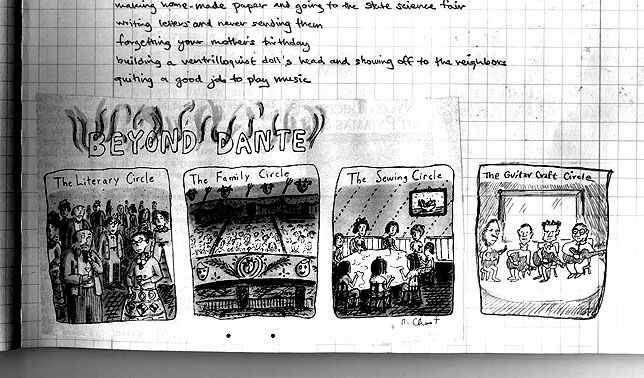 making home-made paper and going to the state science fair
writing letters and never sending them
forgetting your mother's birthday
building a ventrilloquist doll's head and showing off to the neighbors
quiting a good job to play music
BEYOND DANTE
The Literary Circle
The Family Circle
The Sewing Circle
The Guitar Craft Circle
R. Chast